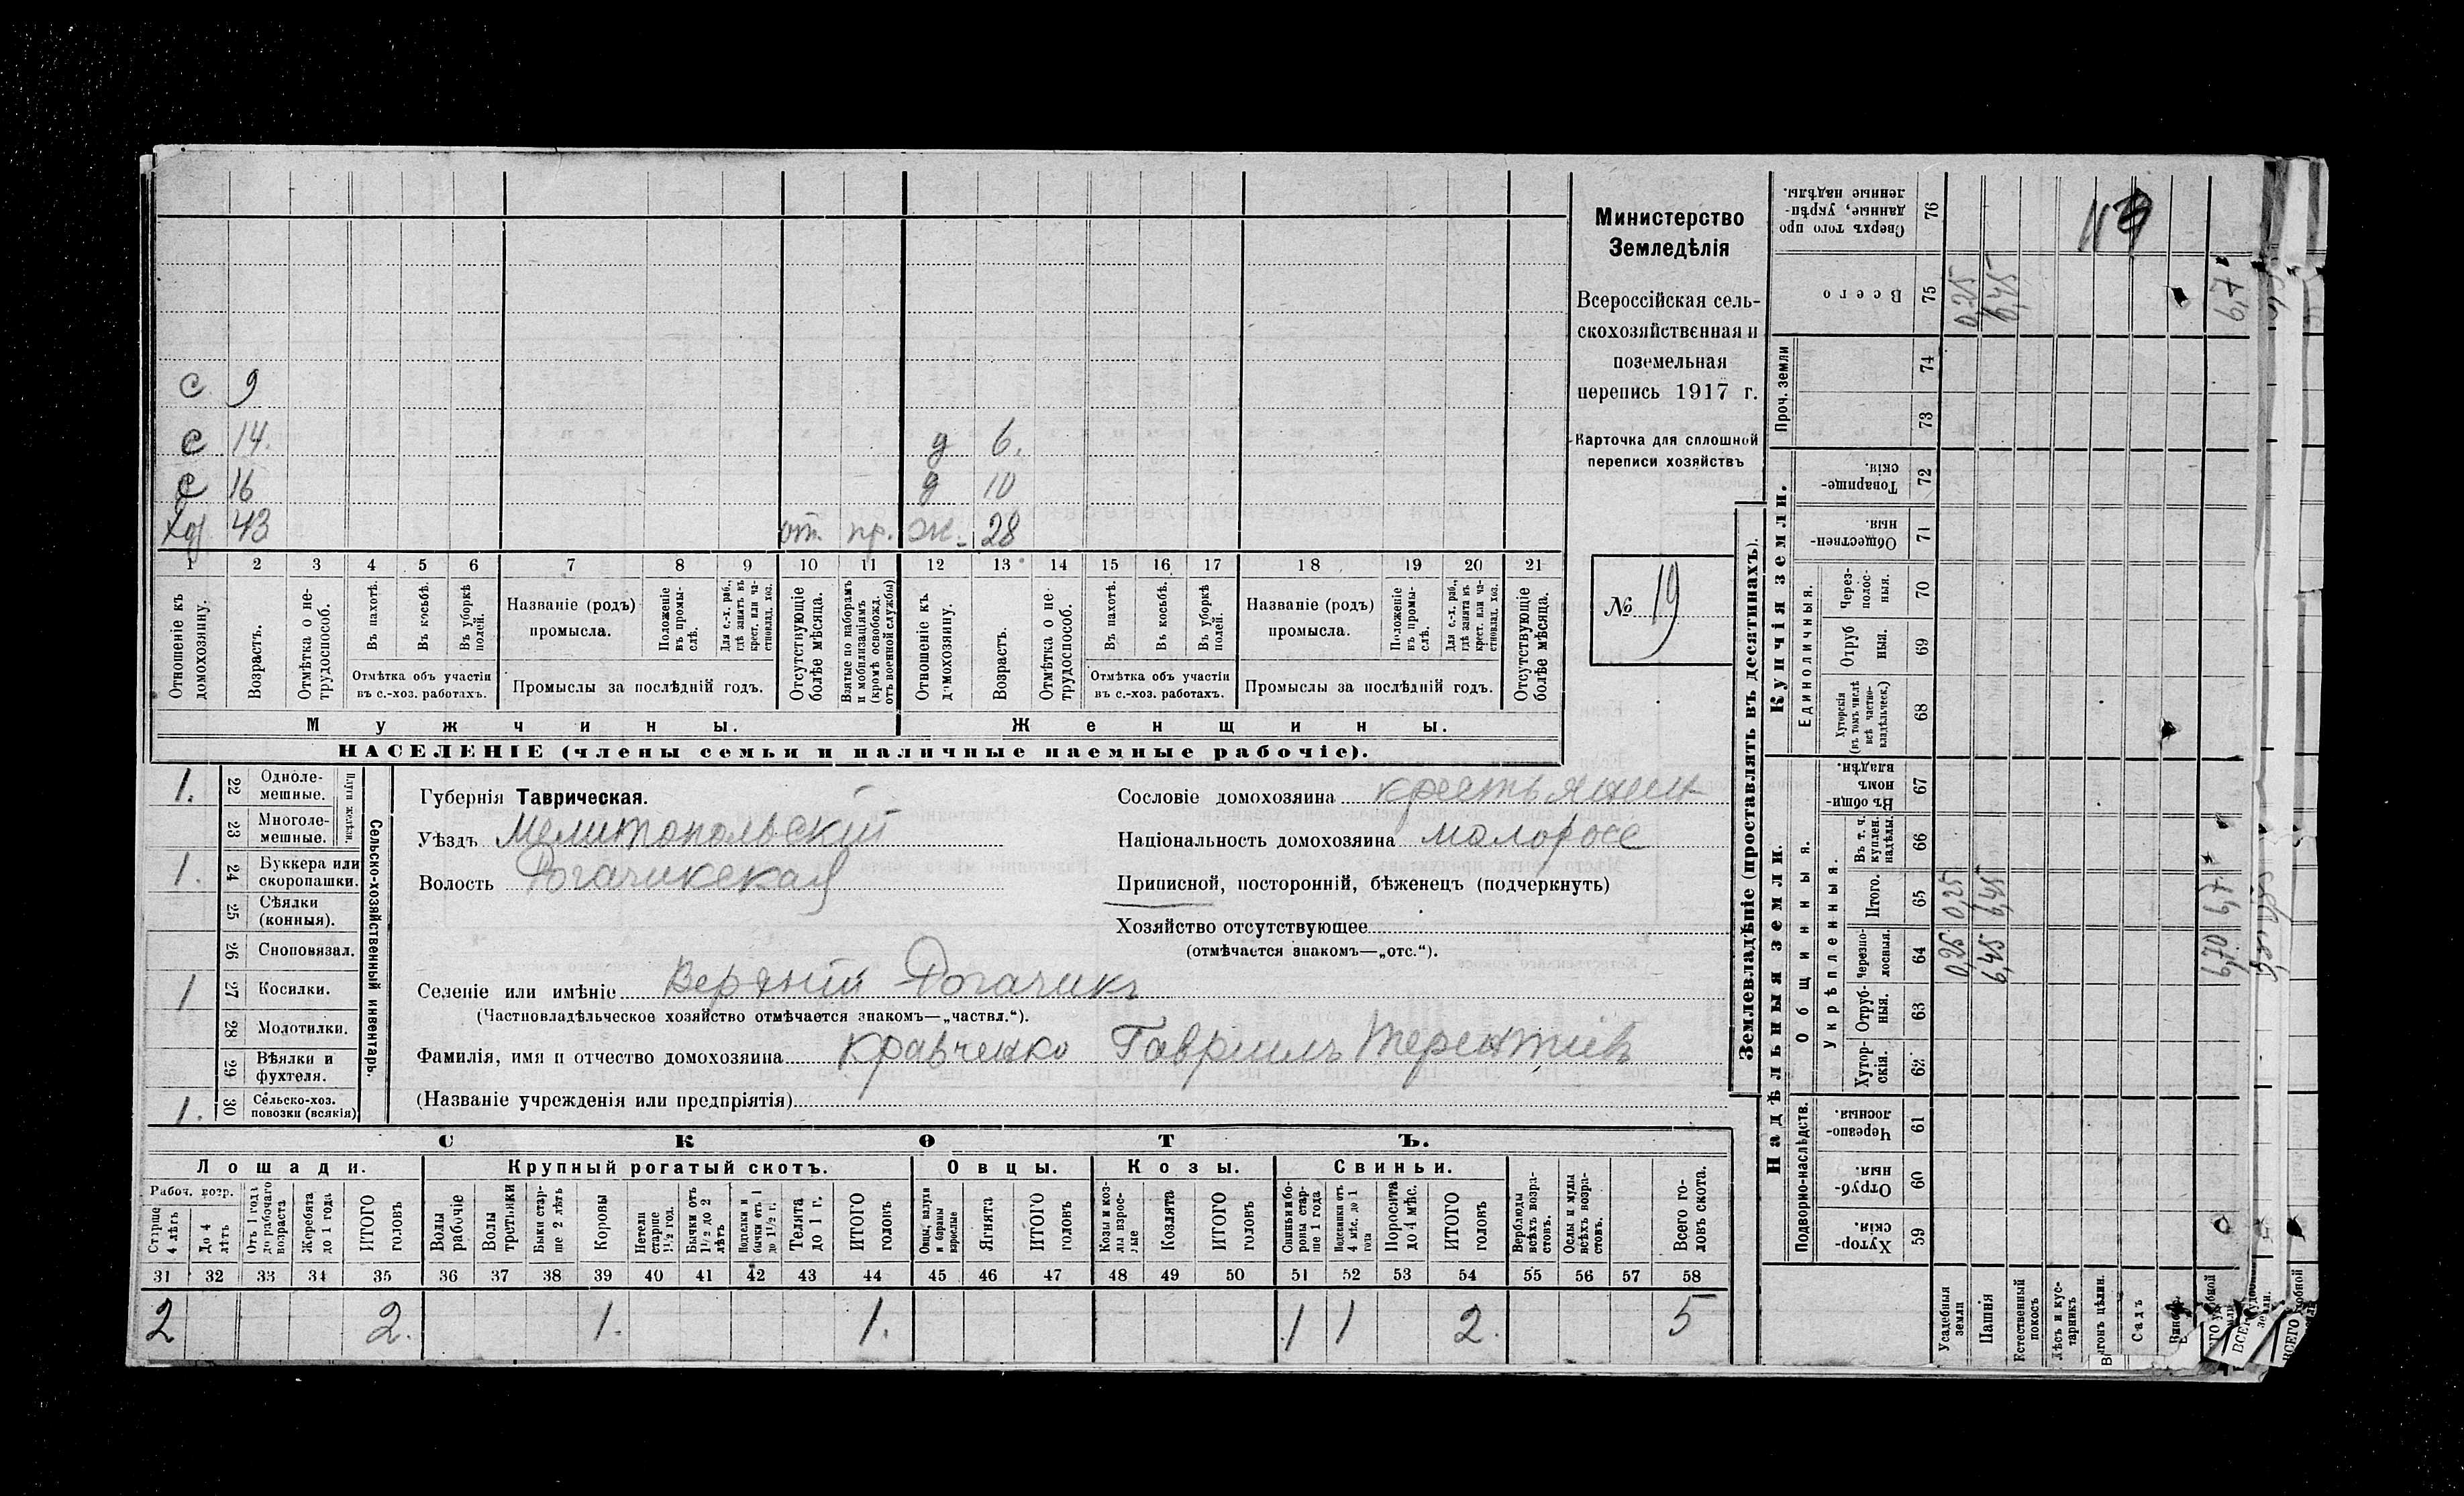 Министерство
Земледѣлія
Всероссійская сель-
скохозяйственная и
поземельная
перепись 1917 г.
Карточка для сплошной
переписи хозяйствъ
№ 19
с 9
с 14. д 6.
с 16 д 10
хоз 43 от. пр. ж. 28
1 2 3 4 5 6 7 8 9 10 11 12 13 14 15 16 17 18 19 20 21
Отношеніе къ домохозяину.
Возрастъ.
Отмѣтка о не-трудоспособ.
Въ пахотѣ.
Въ косьбѣ.
Въ уборкѣ полей.
Отмѣтка объ участіи въ с.-хоз. работахъ.
Названіе (родъ) промысла.
Положеніе въ промы-слѣ.
Для с.-х. раб., гдѣ занятъ въ крест. или ча-стновлад. хоз.
Промыслы за послѣдній годъ.
Отсутствующіе болѣе мѣсяца.
Взятые по наборамъ и мобилизаціямъ (кромѣ освобожд. отъ военной службы)
Отношеніе къ домохозяину.
Возрастъ.
Отмѣтка о не-трудоспособ.
Въ пахотѣ.
Въ косьбѣ.
Въ уборкѣ полей.
Отмѣтка объ участіи въ с.-хоз. работахъ.
Названіе (родъ) промысла.
Положеніе въ промы-слѣ.
Для с.-х. раб., гдѣ занята въ крест. или ча-стновлад. хоз.
Промыслы за послѣдній годъ.
Отсутствующіе болѣе мѣсяца.
Мужчины. Женщины.
НАСЕЛЕНІЕ (члены семьи и наличные наемные рабочіе).
Сельско-хозяйственный инвентарь.
Плуги желѣзн.
1. 22 Одноле-мешные.
23 Многоле-мешные.
1. 24 Буккера или скоропашки.
25 Сѣялки (конныя).
26 Сноповязал.
1 27 Косилки.
28 Молотилки.
29 Вѣялки и фухтеля.
1. 30 Сельско-хоз. повозки (всякія)
Губернія Таврическая.
Уѣздъ Мелитопольскій
Волость Рогачикская
Сословіе домохозяина крестьянин
Національность домохозяина малоросс
Приписной, посторонній, бѣженецъ (подчеркнуть)
Хозяйство отсутствующее
(отмѣчается знакомъ—„отс.“).
Селеніе или имѣніе Верхній Рогачикъ
(Частновладѣльческое хозяйство отмѣчается знакомъ—„частвл.“).
Фамилія, имя и отчество домохозяина Кравченко Гавриилъ Терентіевъ
(Названіе учрежденія или предпріятія)
СКОТЪ.
Лошади. Крупный рогатый скотъ. Овцы. Козы. Свиньи.
Рабоч. возр.
Старше 4 лѣтъ
До 4 лѣтъ
Отъ 1 года до рабочаго возраста
Жеребята до 1 года
ИТОГО головъ
Волы рабочіе
Волы третьяки
Быки стар-ше 2 лѣтъ
Коровы
Нетели старше 1½ год.
Бычки отъ 1½ до 2 лѣтъ
Подтелки и бычки отъ 1 до 1½ г.
Телята до 1 г.
ИТОГО головъ
Овцы, валухи и бараны взрослые
Ягнята
ИТОГО головъ
Козы и коз-лы взрос-лые
Козлята
ИТОГО головъ
Свиньи и бо-ровы стар-ше 1 года
Подсвинки отъ 4 мѣс. до 1 года
Поросята до 4 мѣс.
ИТОГО головъ
Верблюды всѣхъ возра-стовъ.
Ослы и мулы всѣхъ возра-стовъ.
Всего го-ловъ скота.
31 32 33 34 35 36 37 38 39 40 41 42 43 44 45 46 47 48 49 50 51 52 53 54 55 56 57 58
2 2. 1. 1. 1 1 2. 5
Землевладѣніе (проставлять въ десятинахъ).
Надѣльныя земли. Купчія земли. Проч. земли
Подворно-наслѣдств.
Общинныя.
Укрѣпленныя.
Единоличныя.
Хутор-скія. 59
Отруб-ныя. 60
Черезпо-лосныя. 61
Хутор-скія. 62
Отруб-ныя. 63
Черезпо-лосныя. 64 0,25 6,45 6,70
Итого. 65 0,25 6,45 6,7
Въ т. ч. куплен. надѣлы. 66
Въ общи-номъ владѣн. 67
Хуторскія (въ томъ числѣ всѣ частно-владѣльческ.) 68
Отруб ныя. 69
Через-полос-ныя. 70
Обществен-ныя. 71
Товарище-скія. 72
73
74
Всего 75 0,25 6,45 6,7
Сверхъ того про данные, укрѣп-ленные надѣлы. 76
Усадебныя земли
Пашня
Естественный покосъ
Лѣсъ и кус-тарникъ
Садъ